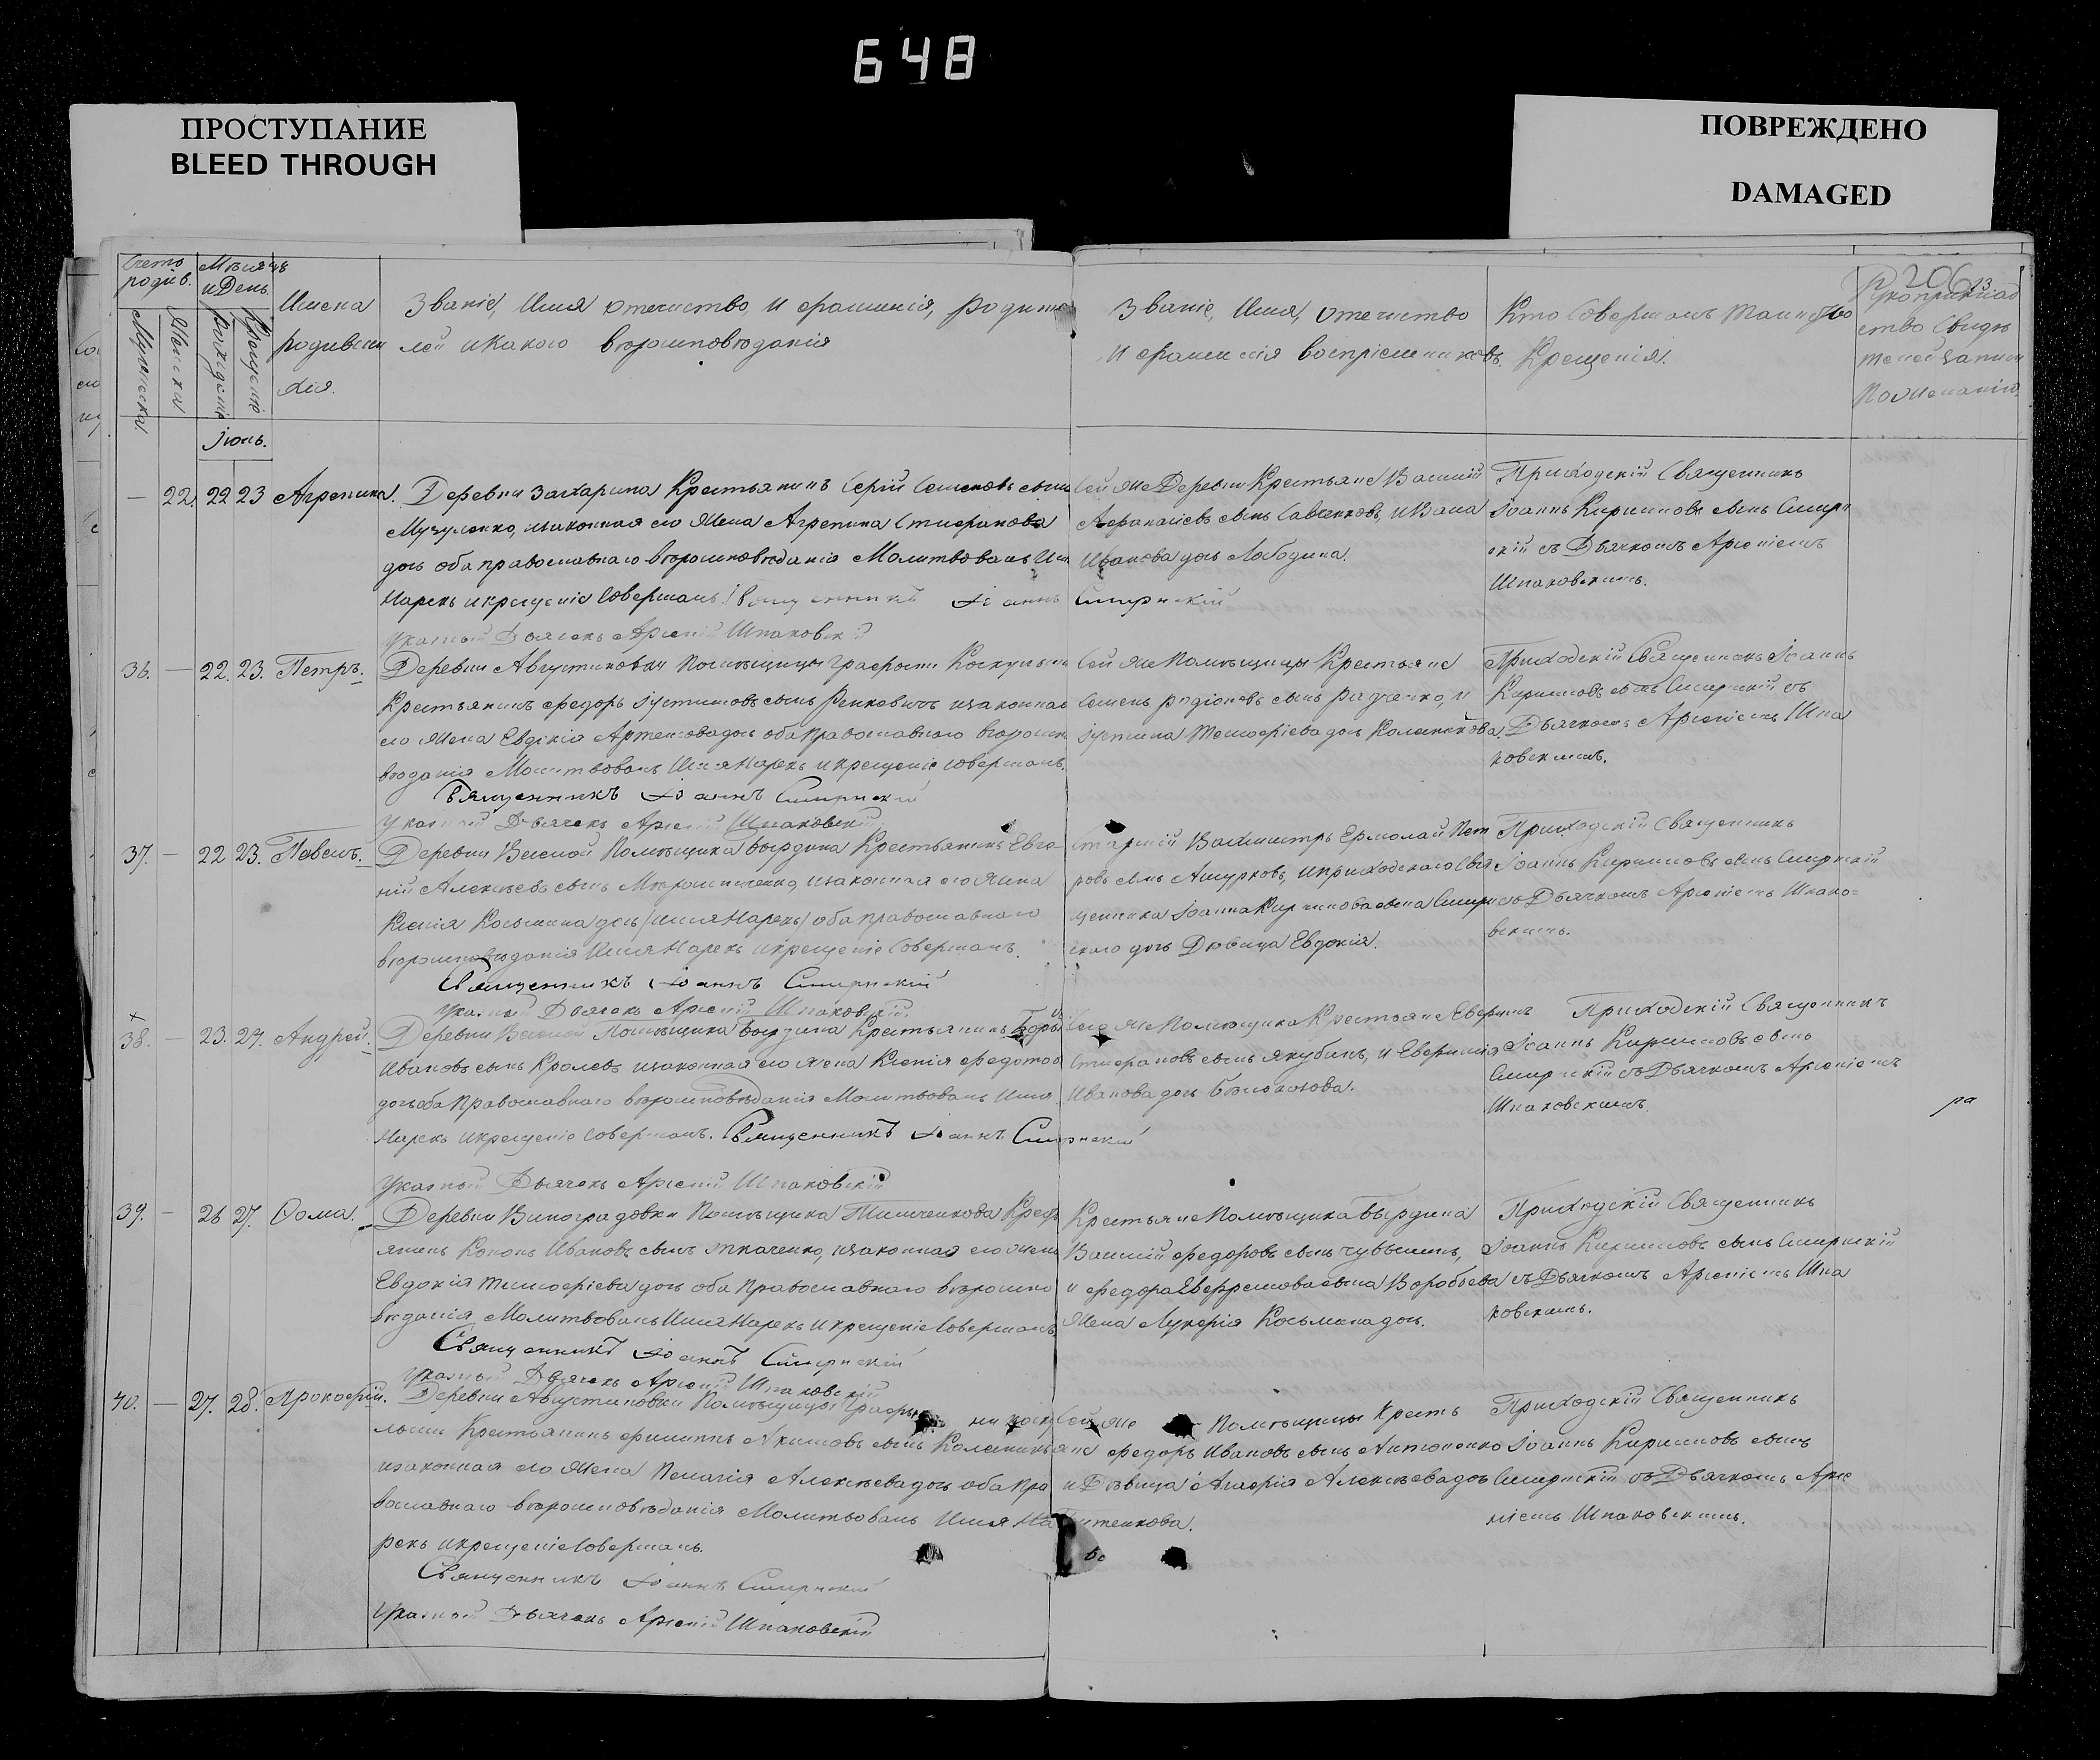 648
ПРОСТУПАНИЕ
BLEED THROUGH
ПОВРЕЖДЕНО
DAMAGED
206
Счетъ родив.
Мужеска
Женска
Мѣсяцъ и День.
Рожденіе
Крещеніе
Имена родивши
хся.
Званіе, Имя отечество, и фамилія, родите
лей и Какого вѣроисповѣданія
Званіе, Имя, Отечество
и фамилія воспріемниковъ.
Кто Совершалъ Таинство
Крещенія.
Рукоприклад
ство Свидѣ
телей записи
По желанію
Іюнь.
— 22. 22 23 Агрепина.
Деревни Захарина Крестьянинъ Сергій Семеновъ сынъ
законная его Жена Агрепина Стефанова
дочь оба православнаго вѣроисповѣданія Молитвовалъ Имя
Нарекъ и крещеніе Совершалъ. Священникъ Іоаннъ Смирнскій
Указный Дьячекъ Арсеній Шпаковскій
Сей же Деревни Крестьяне Василій
Афанасіевъ сынъ Савченковъ, и
Иванова дочь Лободина.
Приходскій Священникъ
Іоаннъ Кириловъ сынъ Смирн
скій съ Дьячкомъ Арсеніемъ
Шпаковскимъ.
36. — 22. 23. Петръ.
Деревни Августиновки Помѣщицы Графини
Крестьянинъ Федоръ Іустиновъ сынъ Ренковичъ законная
его Жена Евдокія Артемова дочь оба Православнаго вѣроиспо
вѣданія Молитвовалъ Имя Нарекъ и крещеніе совершалъ.
Священникъ Іоаннъ Смирнскій
Указный Дьячекъ Арсеній Шпаковскій
Сей же Помѣщицы Крестьяне
Семенъ Родіоновъ сынъ Радченко, и
Іустина Тимофіева дочь Колесникова.
Приходскій Священникъ Іоаннъ
Кириловъ сынъ Смирнскій съ
Дьячкомъ Арсеніемъ Шпа
ковскимъ.
37. — 22 23. Павелъ.
Деревни Веселой Помѣщика Бырдина Крестьянинъ Евге-
ній Алексѣевъ сынъ законная его Жена
Ксенія Косьмина дочь оба православнаго
вѣроисповѣданія Имя Нарекъ и крещеніе Совершалъ.
Священникъ Іоаннъ Смирнскій
Указный Дьячекъ Арсеній Шпаковскій
Старшій Вахмистръ Ермолай Пет
ровъ сынъ Ашурковъ, и приходскаго Свя
щенника Іоанна Кирилова сына Смирн
скаго дочь Дѣвица Евдокія.
Приходскій Священникъ
Іоаннъ Кириловъ сынъ Смирнскій
съ Дьячкомъ Арсеніемъ Шпако=
вскимъ.
38. — 23. 24. Андрей.
Деревни Веселой Помѣщика Бырдина Крестьянинъ
Ивановъ сынъ Кролевъ законная его жена Ксенія Федотова
дочь оба Православнаго вѣроисповѣданія Молитвовалъ Имя
Нарекъ и крещеніе Совершалъ. Священникъ Іоаннъ Смирнскій
Указный Дьячекъ Арсеній Шпаковскій
Сего же Помѣщика Крестьяне
Стефановъ сынъ Якубинъ, и Евфимія
Иванова дочь Бѣлоконова.
Приходскій Священникъ
Іоаннъ Кириловъ сынъ
Смирнскій съ Дьячкомъ Арсеніемъ
Шпаковскимъ.
ра
39. — 26 27. Ѳома.
Деревни Виноградовки Помѣщика Тимченкова Крест
янинъ Кононъ Ивановъ сынъ Ткаченко, законная его жена
Евдокія Тимофіева дочь оба Православнаго вѣроиспо
вѣданія, Молитвовалъ Имя Нарекъ и крещеніе Совершалъ.
Священникъ Іоаннъ Смирнскій
Указный Дьячекъ Арсеній Шпаковскій
Крестьяне Помѣщика Бырдина
Василій Федоровъ сынъ
и Федора Евфремова сына Воробьева
Жена Лукерія Косьмина дочь.
Приходскій Священникъ
Іоаннъ Кириловъ сынъ Смирнскій
съ Дьячкомъ Арсеніемъ Шпа
ковскимъ.
40. — 27. 28. Прокофій.
Деревни Августиновки Помѣщицы Графи
Крестьянинъ Филиппъ Акимовъ сынъ
законная его Жена Пелагія Алексѣева дочь оба Пра
вославнаго вѣроисповѣданія Молитвовалъ Имя На
рекъ и крещеніе Совершалъ.
Священникъ Іоаннъ Смирнскій
Указный Дьячекъ Арсеній Шпаковскій
Сей же Помѣщицы Кресть
яне Федоръ Ивановъ сынъ Антоненко
и Дѣвица Агафія Алексѣева дочь
Приходскій Священникъ
Іоаннъ Кириловъ сынъ
Смирнскій съ Дьячкомъ Арсе
ніемъ Шпаковскимъ.